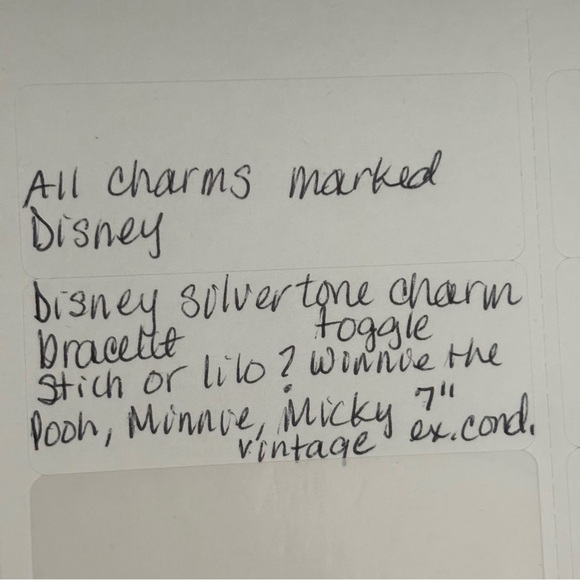 All charms marked
Disney
Disney silvertone charm
bracelet toggle
Stich or lilo? Winnie the
Pooh, Minnie, Micky 7"
vintage ex.cond.